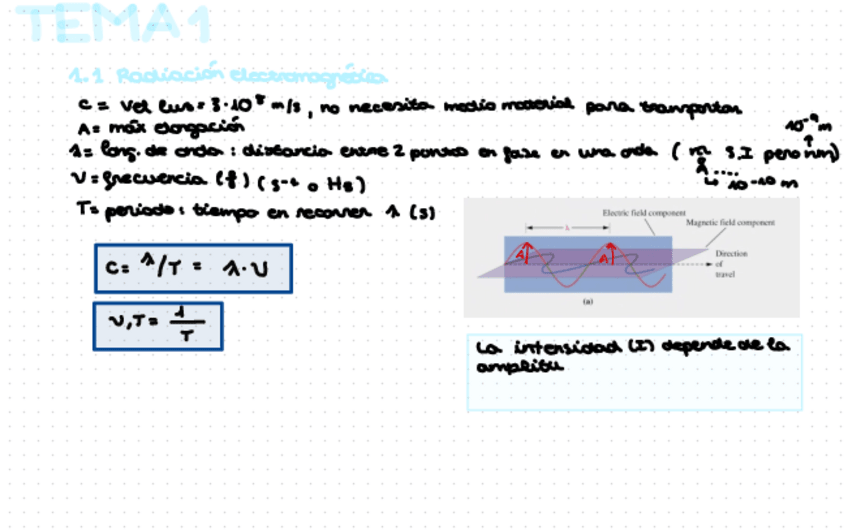 TEMA 1
1.1 Radiación electromagnética
C = vel luz = 3·10⁸ m/s, no necesita medio material para transportar
A = máx elongación
10⁻⁹ m
λ = long. de onda : distancia entre 2 puntos en fase en una onda ( m S.I pero nm)
Å ....
↳ 10⁻¹⁰ m
ν = frecuencia (f) ( s⁻¹ o Hz)
T = periodo : tiempo en recorrer λ (s)
C = λ/T = λ · ν
ν, T = 1/T
Electric field component
Magnetic field component
λ
A
A
Direction
of
travel
(a)
La intensidad (I) depende de la
amplitu